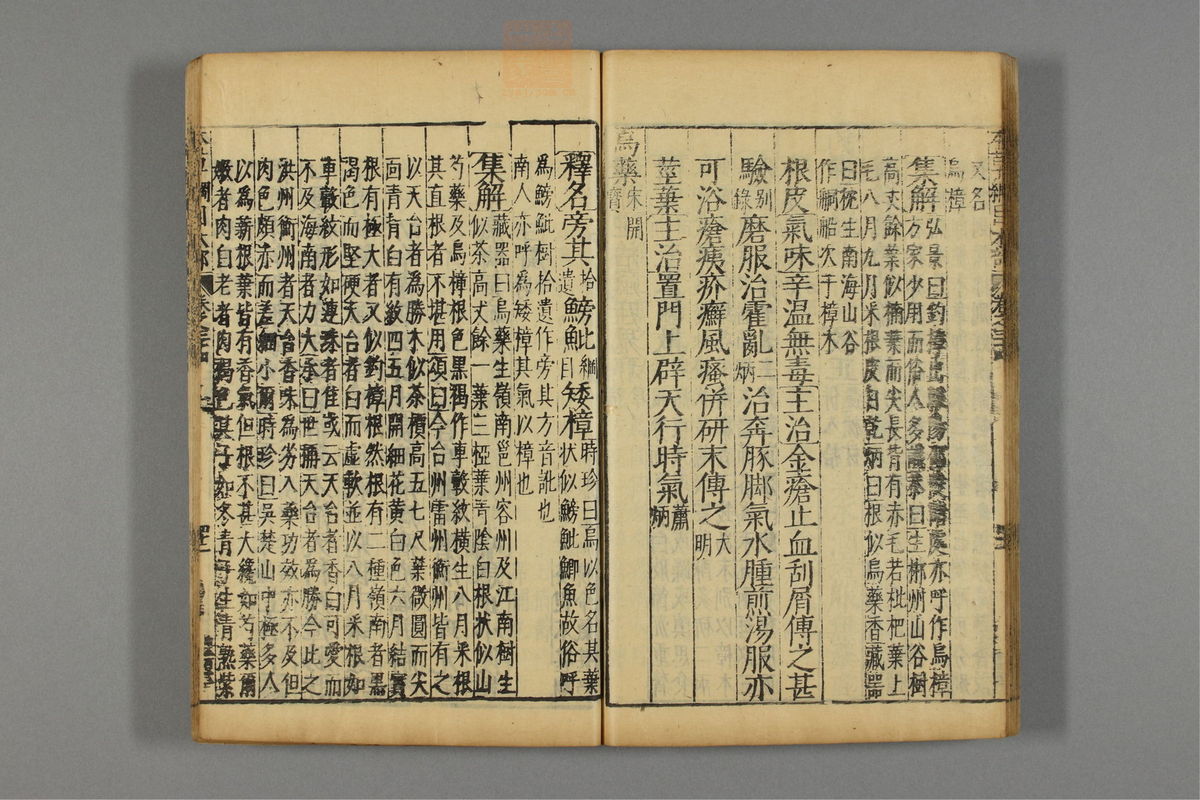 又名
烏樟
集解弘景曰釣樟出
方家少用而俗人多識恭曰生柳州山谷樹亦呼作烏樟
高丈餘葉似楠葉而尖長背有赤毛若枇杷葉上
毛八月九月采根皮日乾炳曰根似烏藥香藏器
曰樟生南海山谷
作舸船次于樟木
根皮氣味辛温無毒主治金瘡止血刮屑傅之甚
驗別錄磨服治霍亂二治奔豚脚氣水腫煎湯服亦
可浴瘡痍疥癬風瘙併研末傅之大明
莖葉主治置門上辟天行時氣蕭炳
烏藥宋開寶
釋名旁其拾遺鰟䱗綱目矮樟時珍曰烏以色名其葉
狀似鰟䱗鯽魚故俗呼
為鰟䱗樹拾遺作旁其方音訛也
南人亦呼為矮樟其氣以樟也
集解藏器曰烏藥生嶺南邕州容州及江南樹生
似茶高丈餘一葉三椏葉青陰白根狀似山
芍藥及烏樟根色黑褐作車轂紋橫生八月采根
其直根者不堪用頌曰今台州雷州衡州皆有之
以天台者為勝木似茶檟高五七尺葉微圓而尖
面青背白有紋四五月開細花黃白色六月結實
根有極大者又似釣樟根然根有二種嶺南者黑
褐色而堅硬天台者白而虛軟並以八月采根如
車轂紋形如連珠者佳或云天台者香白可愛而
不及海南者力大承曰世稱天台者為勝今此之
洪州衡州者天台香味為劣入藥功效亦不及但
肉色頗赤而差細小爾時珍曰吳楚山中極多人
以為薪根葉皆有香氣但根不甚大纔如芍藥爾
嫩者肉白老者肉褐色其子如冬青子生青熟紫